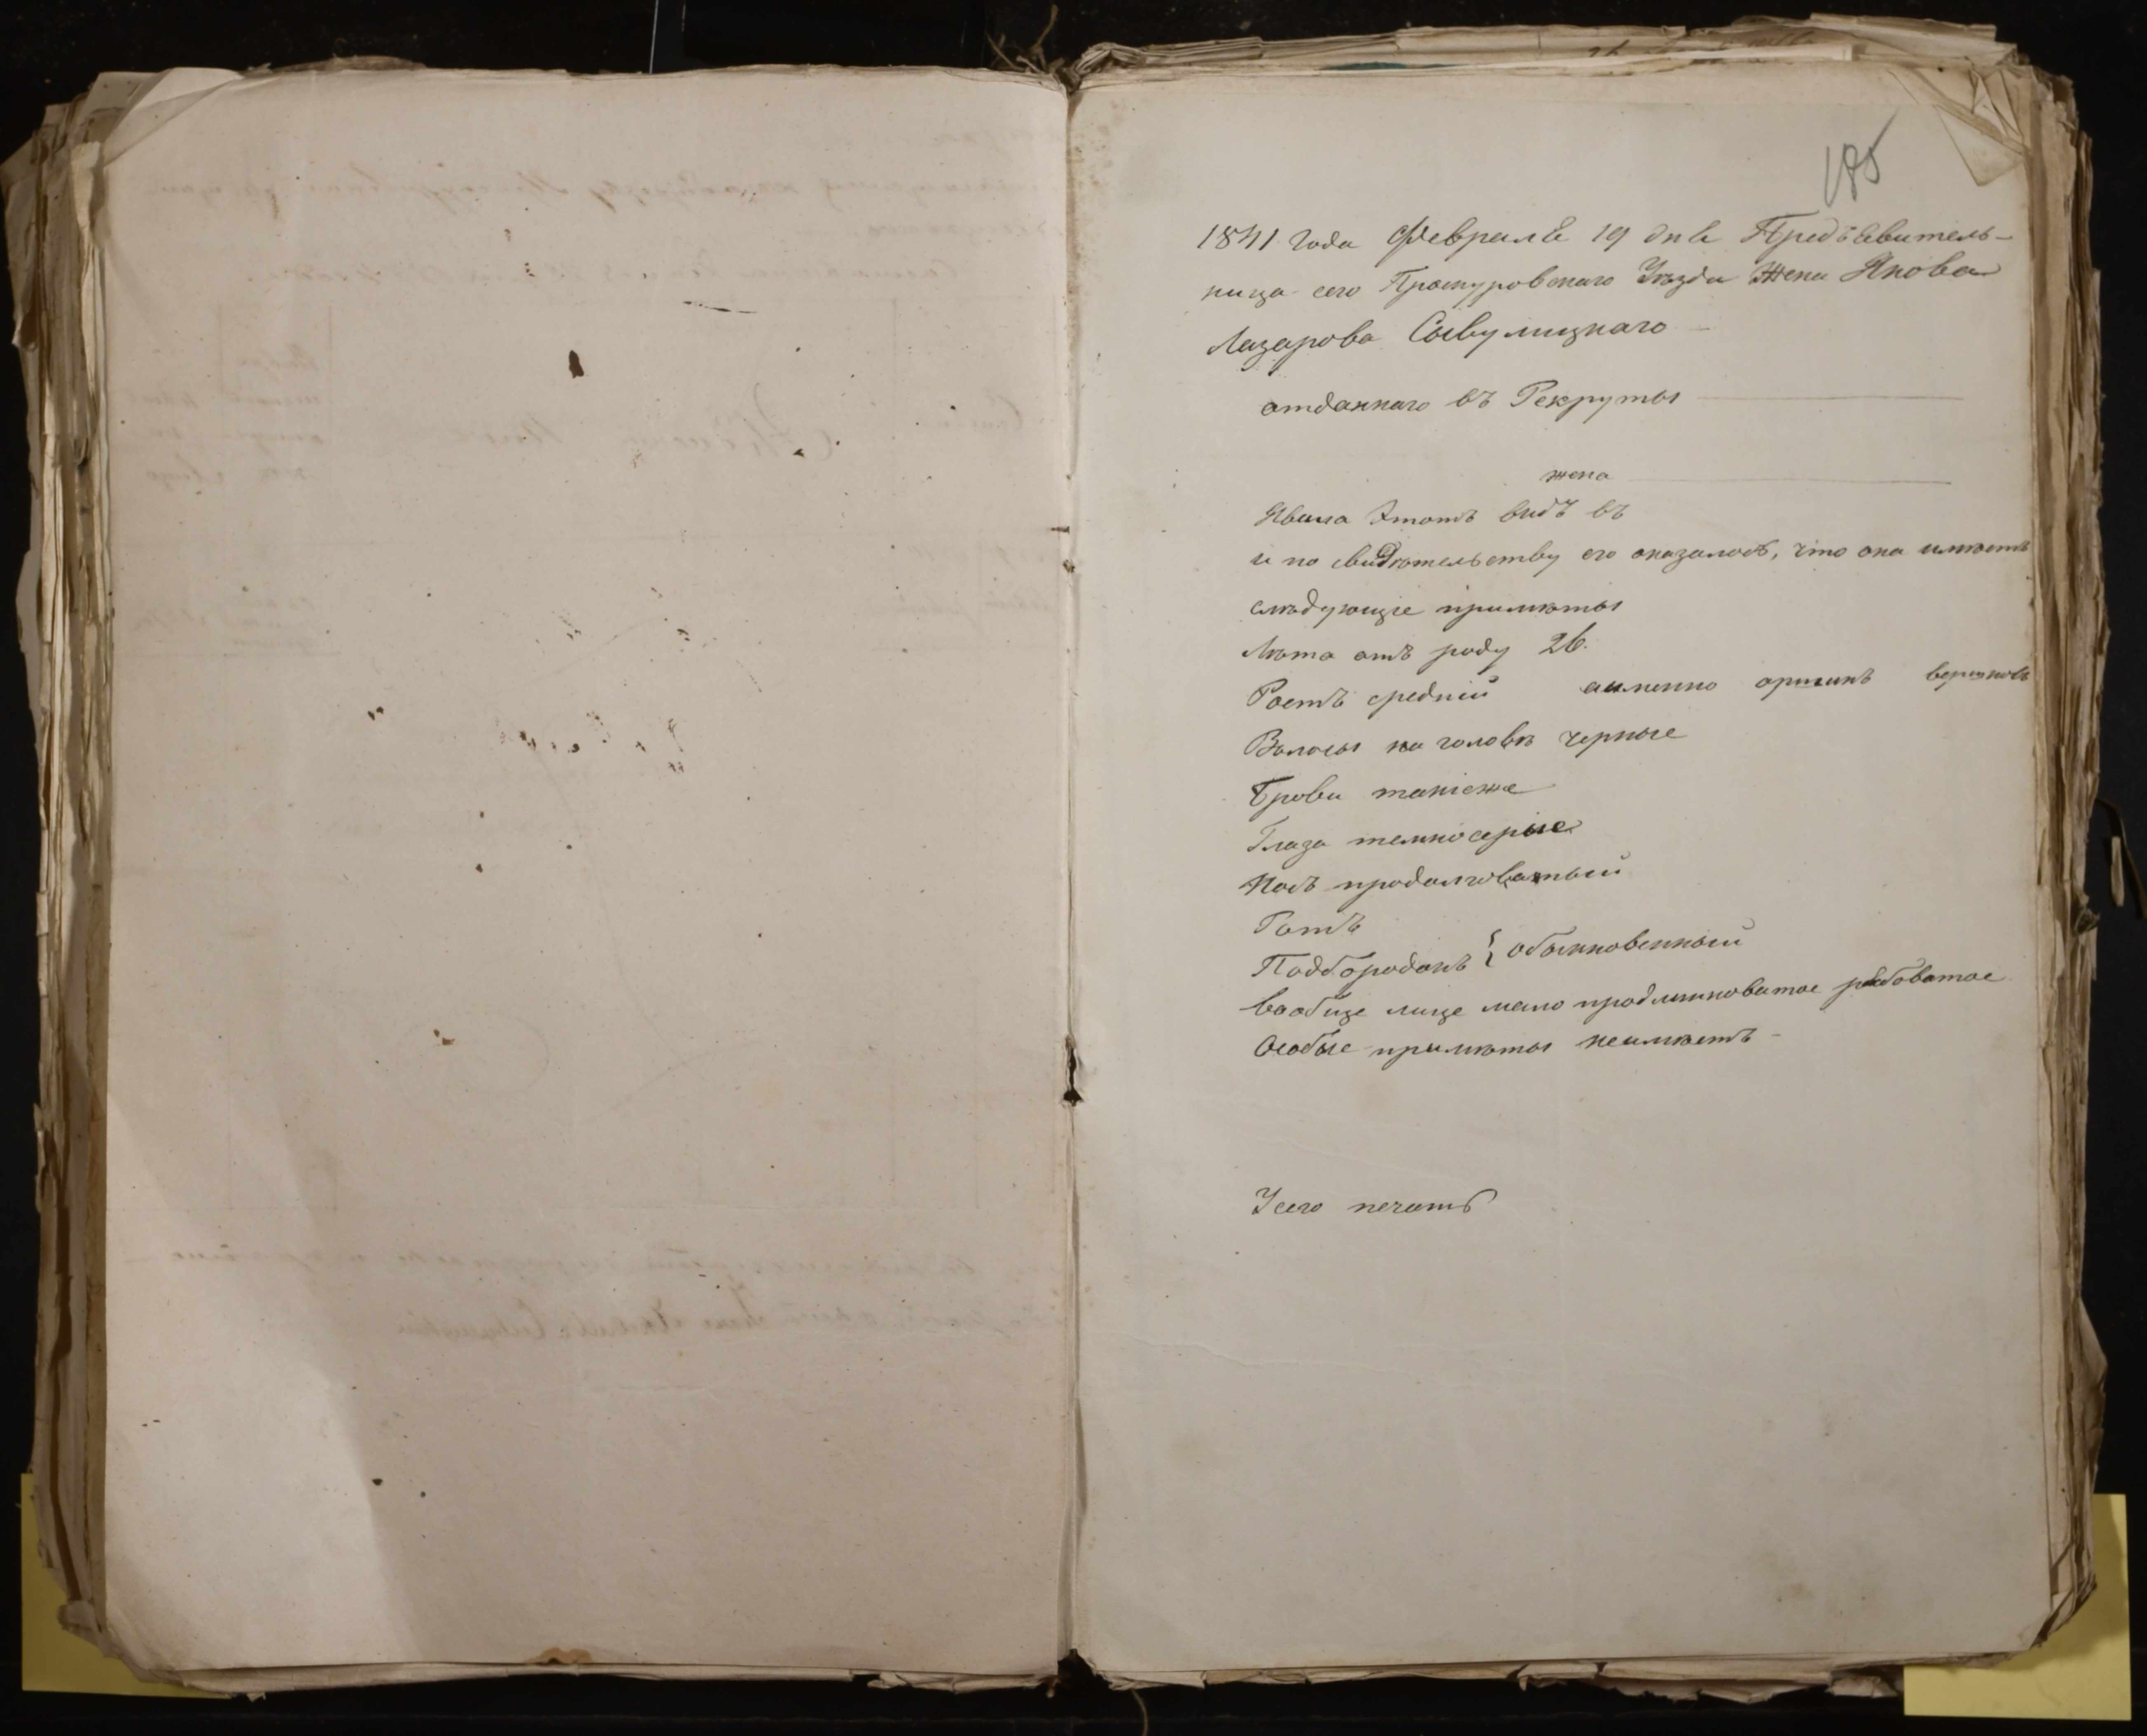 185
1841 года Февраля 19 дня Предъявитель-
ница сего Проскуровскаго Уѣзда Жена Якова
Лазарова Савулицкаго
отданнаго въ Рекруты
жена
Явила Этотъ видъ въ
и по свидѣтельству его оказалось, что она имѣетъ
слѣдующіе примѣты
Лѣта отъ роду 26.
Ростъ средній аименно аршинъ вершковъ
Волосы на головѣ черные
Брови такіеже
Глаза темносерые
Носъ продолговатый
Ротъ
Подбородокъ } обыкновенный
вообще лице мало продлинноватое рябоватое
Особые примѣты неимѣетъ -
Усего печать